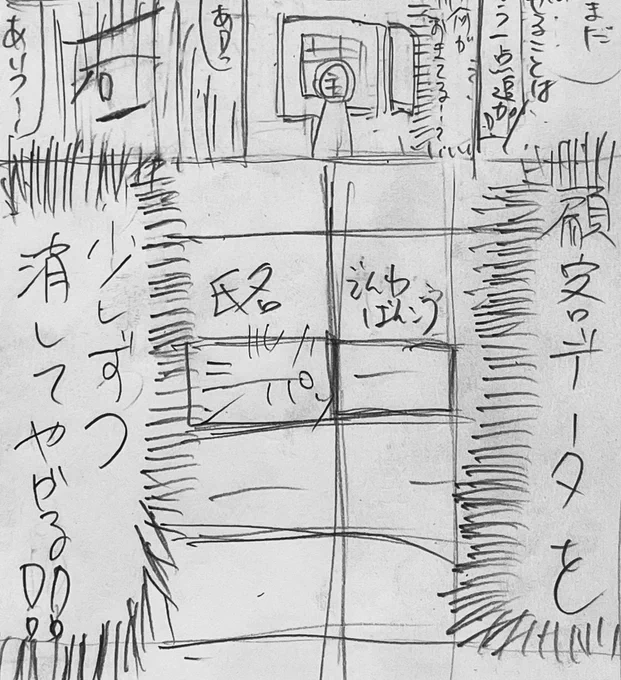 まだ
ることは
う一点追加!!
何が
おきてる!?
ああっ
あいつ〜〜
顧客データを
氏名
でんわ
ばんごう
少しずつ
消してやがる!!